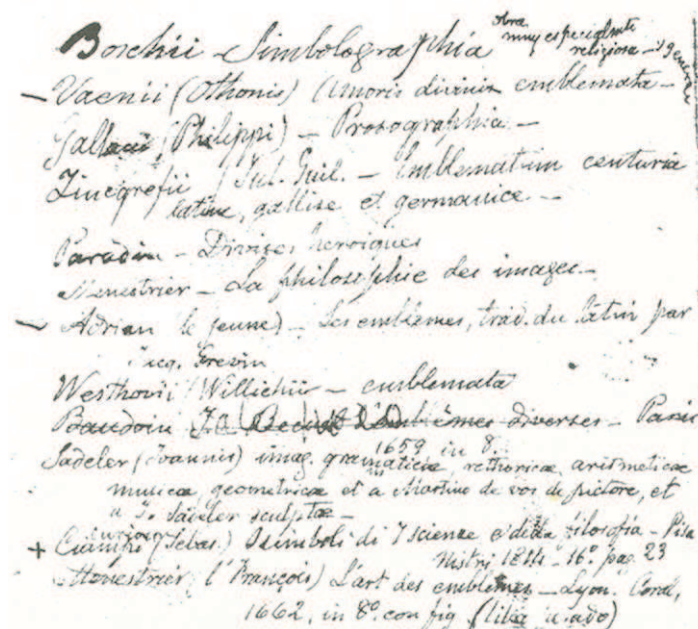 Boschii - Simbolographia obra muy especialmte religiosa -
- Vaenii (Othonis) Amoris divini emblemata -
(Philippi) - Prosographia -
Zincgrefii Jul. Guil. - Emblematum centuria
latine, gallise et germanice -
Paradin - Divises heroiques
Menestrier - La philosophie des images -
- Adrian (le jeune) - Les emblêmes, trad. du latin par
Jacq. Grevin
Westhovii Willichii - emblemata
Baudoin diverses - Paris
1659 in 8º
Sadeler (Joannis) imag. gramaticæ, rethoricæ, arismeticæ
musicæ, geometricæ et a Martino de vos de pictore, et
a Jº Sadeler sculptæ -
+ Ciampi (Sebas.) simboli di scienze e della filosofia - Pisa
Nistri 16º pag. 23
Menestrier (François) L'art des emblêmes - Lyon. Coral,
1662, in 8º con fig